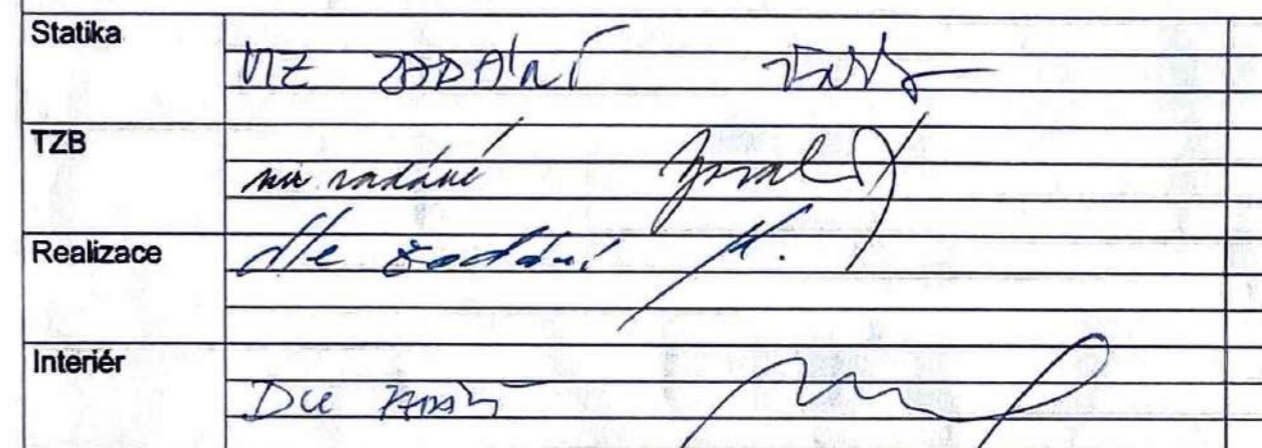 Statika
VIZ ZADÁNÍ
TZB
viz zadání
Realizace
dle zadání
Interiér
DLE ZADÁNÍ